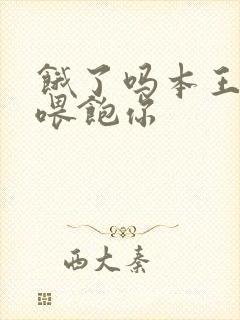 餓了吗本王
喂飽你
西大秦